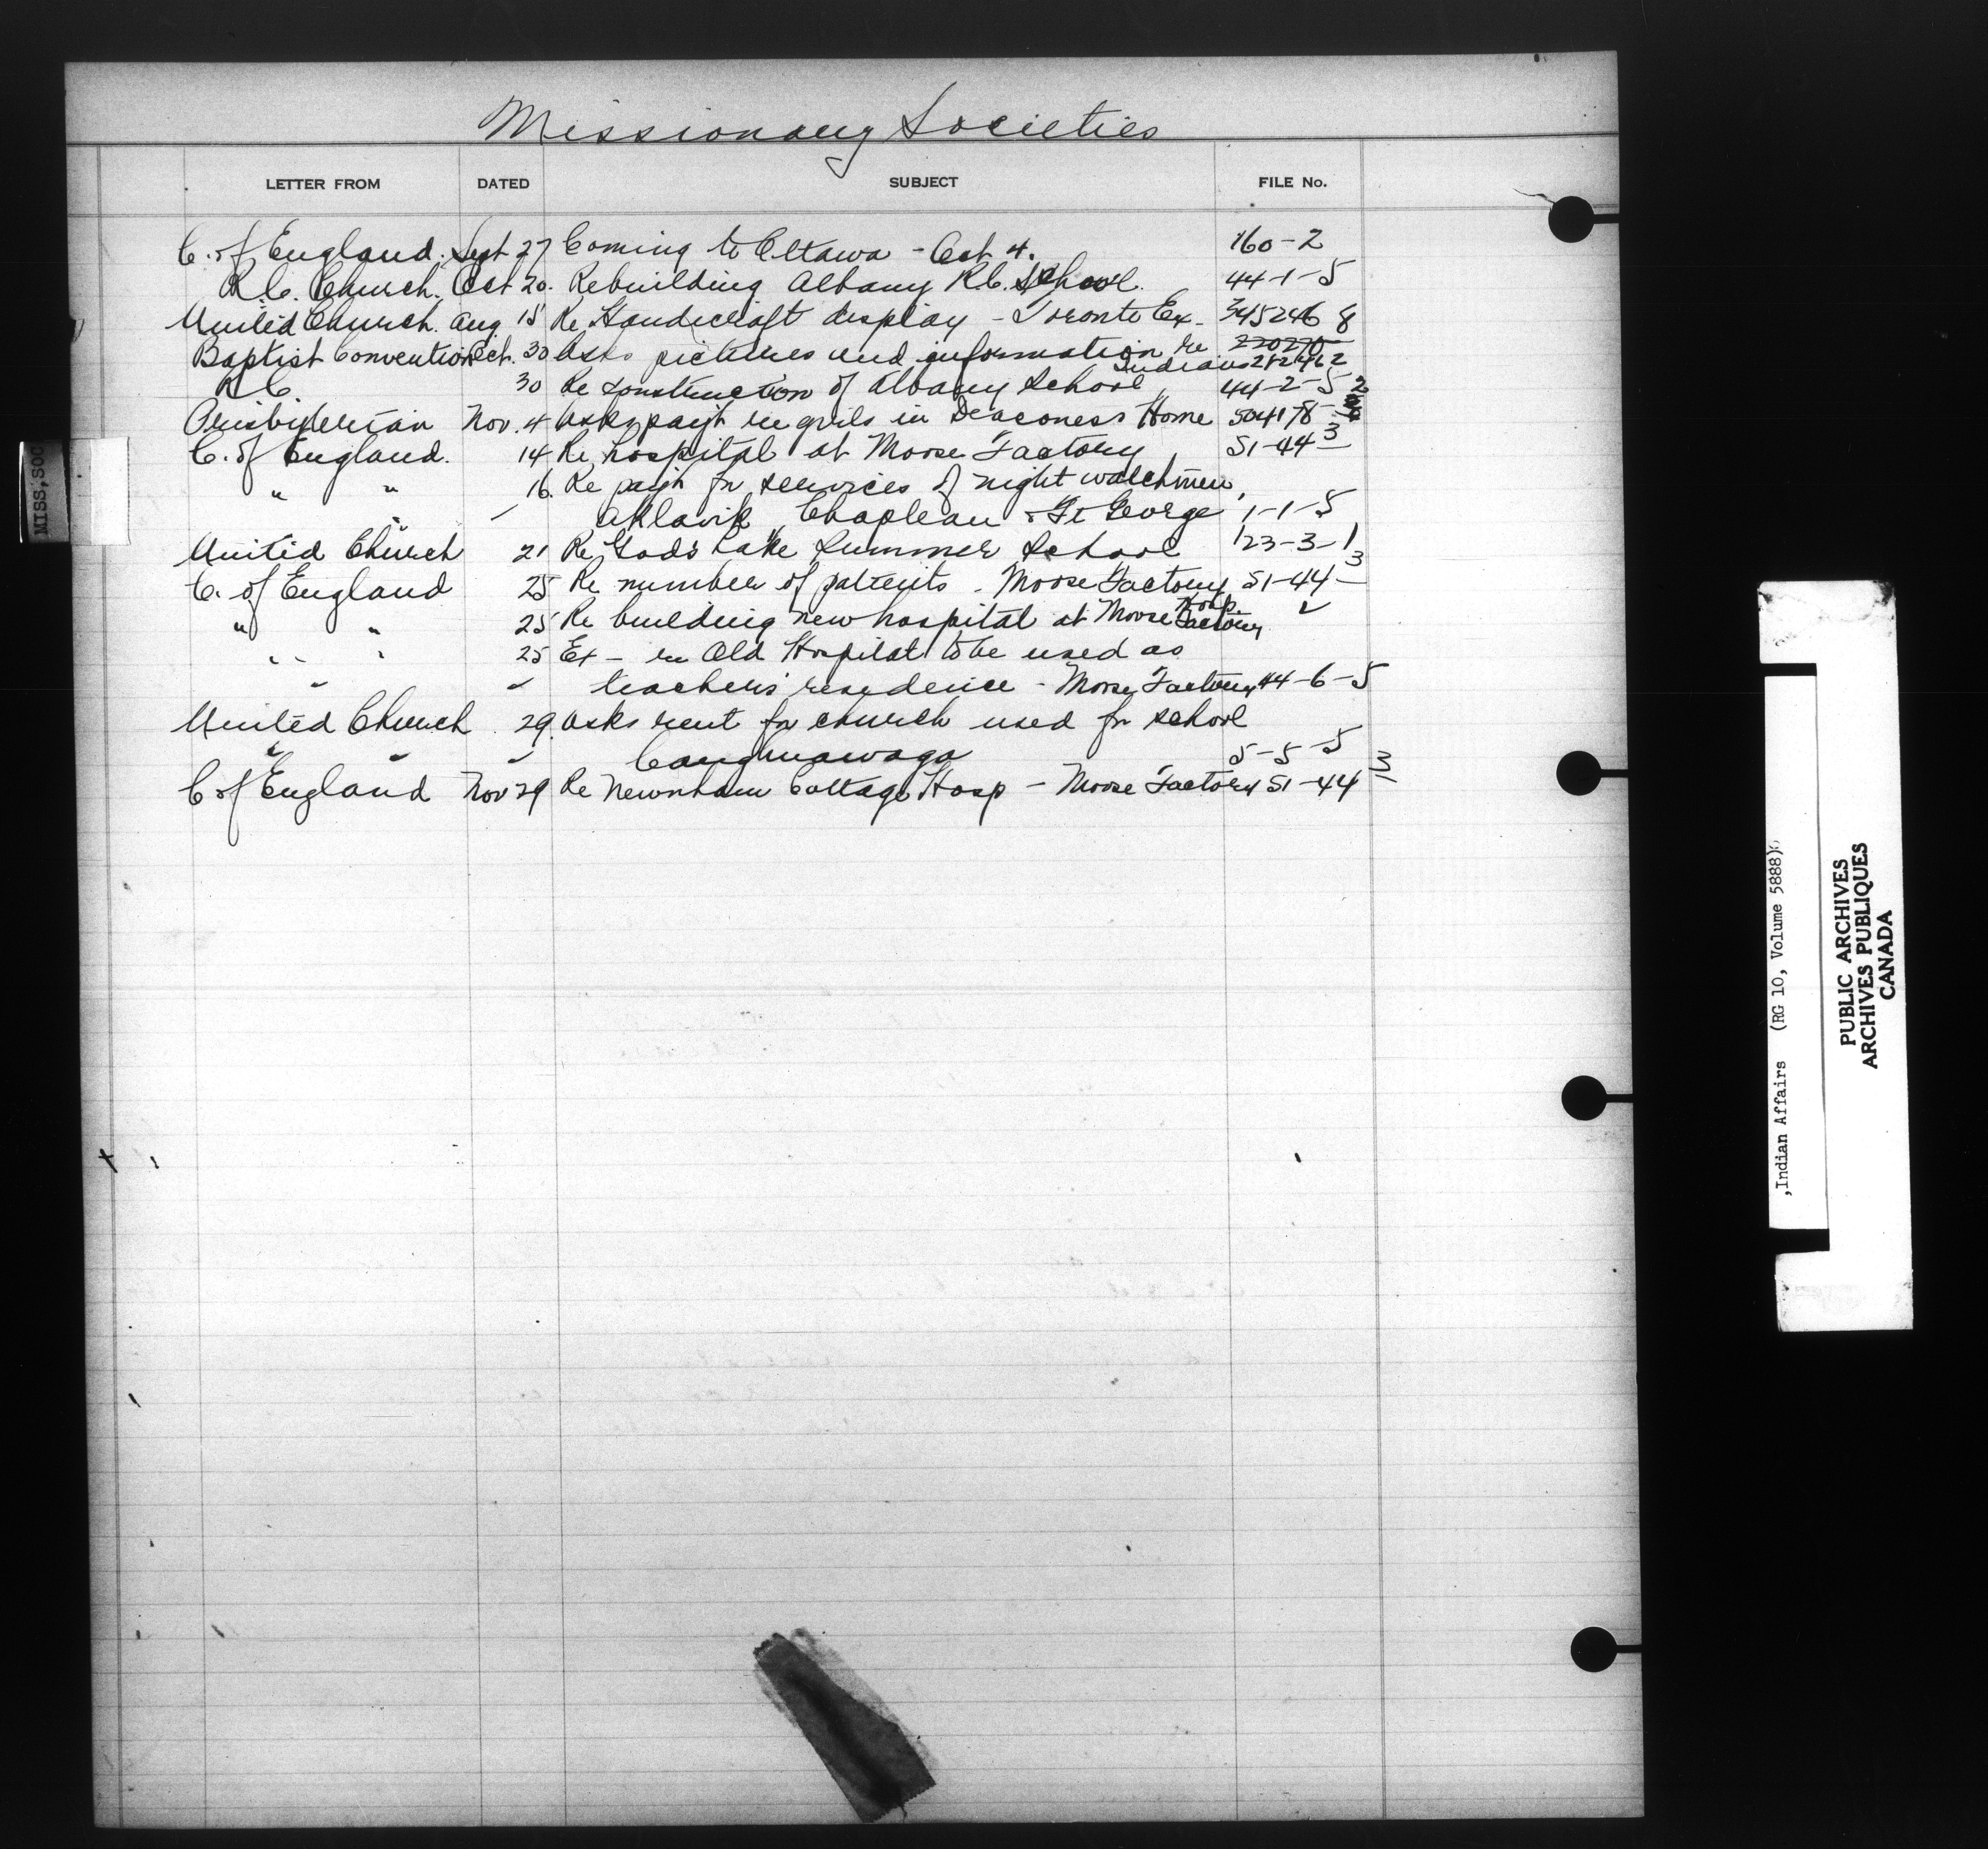 Missionary Societies
LETTER FROM DATED SUBJECT FILE No.
C. of England. Sept 27 Coming to Ottawa - Oct 4. 160-2
R.C. Church. Oct 20. Rebuilding Albany R.C. School. 44-1-5
United Church. Aug 15 Re Handicraft display - Toronto Ex. 345246 8
Baptist Convention Oct. 30 Asks pictures and information re 220270
Indians 212462
R.C. 30 Re construction of Albany School 44-2-5
Presbyterian Nov. 4 Asks paym't re girls in Deaconess Home 504178
C. of England. 14 Re hospital at Moose Factory 51-44 3
" " 16. Re paym't for services of night watchmen,
" Aklavik, Chapleau & Ft George 1-1-5
United Church 21 Re "Gods Lake Summer School" 123-3-1
C. of England 25 Re number of patients - Moose Factory 51-44 3
Hosp.
" " 25 Re building new hospital at Moose Factory "
" " 25 Ex - re Old Hospital to be used as
" " teachers' residence - Moose Factory 44-6-5
United Church 29. Asks rent for church used for school
" " " Caughnawaga 5-5-5
C of England Nov 29 Re Newnham Cottage Hosp - Moose Factory 51-44 3
MISS,SOC
,Indian Affairs (RG 10, Volume 5888)
PUBLIC ARCHIVES
ARCHIVES PUBLIQUES
CANADA